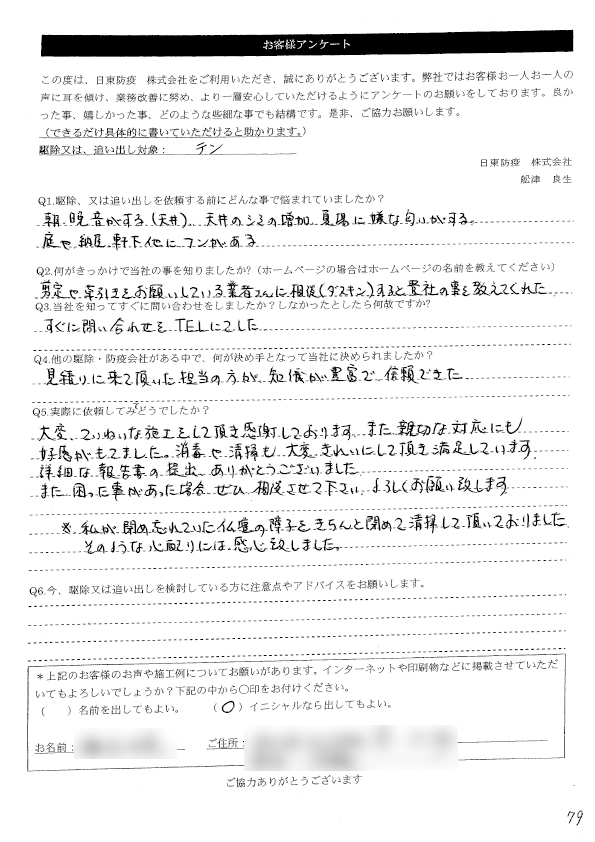 お客様アンケート
この度は、日東防疫 株式会社をご利用いただき、誠にありがとうございます。弊社ではお客様お一人お一人の
声に耳を傾け、業務改善に努め、より一層安心していただけるようにアンケートのお願いをしております。良か
った事、嬉しかった事、どのような些細な事でも結構です。是非、ご協力お願いします。
(できるだけ具体的に書いていただけると助かります。)
駆除又は、追い出し対象: テン
日東防疫 株式会社
舩津 良生
Q1.駆除、又は追い出しを依頼する前にどんな事で悩まれていましたか?
朝・晩音がする(天井)、天井のシミの増加 夏場に嫌な匂いがする。
庭や納屋 軒下他にフンがある
Q2.何がきっかけで当社の事を知りましたか?(ホームページの場合はホームページの名前を教えてください)
剪定や草引きをお願いしている業者さんに相談(ダスキン)すると貴社の事を教えてくれた
Q3.当社を知ってすぐに問い合わせをしましたか?しなかったとしたら何故ですか?
すぐに問い合わせをTELにてした
Q4.他の駆除・防疫会社がある中で、何が決め手となって当社に決められましたか?
見積りに来て頂いた担当の方が 知識が豊富で信頼できた
Q5.実際に依頼してみてどうでしたか?
大変、ていねいな施工をして頂き感謝しております。また親切な対応にも
好感がもてました。消毒や清掃も大変きれいにして頂き満足しています。
詳細な報告書の提出 ありがとうございました
また困った事があった場合 ぜひ 相談させて下さい。よろしくお願い致します
※ 私が閉め忘れていた仏壇の障子をきちんと閉めて清掃して頂いておりました
そのような心配りには感心致しました。
Q6.今、駆除又は追い出しを検討している方に注意点やアドバイスをお願いします。
*上記のお客様のお声や施工例についてお願いがあります。インターネットや印刷物などに掲載させていただ
いてもよろしいでしょうか?下記の中から〇印をお付けください。
( )名前を出してもよい。 (〇)イニシャルなら出してもよい。
お名前: ご住所:
ご協力ありがとうございます
79